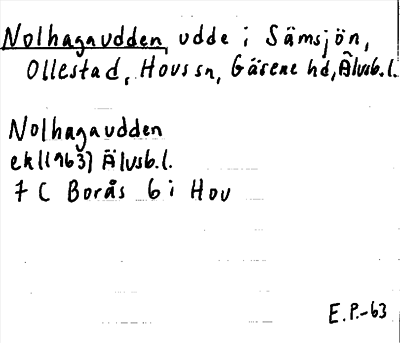 Nolhagaudden, udde i Sämsjön,
Ollestad, Hovs sn, Gäsene hd, Älvsb.l.
Nolhagaudden
ek(1963) Älvsb.l.
7 C Borås 6 i Hov
E.P.-63